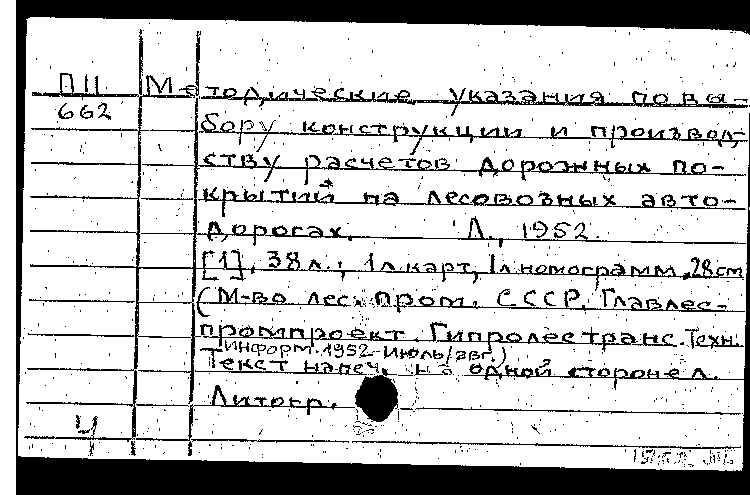 П11 Методические указания по вы-
662
бору конструкции и производ-
ству расчетов дорожных по-
крытий на лесовозных авто-
дорогах. Л., 1952.
[1], 38 л.; 1 л. карт, 1 л. номограмм, 28 см
(М-во лес. пром. СССР. Главлес-
промпроект. Гипролестранс. Техн.
информ. 1952-июль/авг.)
Текст напеч. на одной стороне л.
Литогр.
Ч